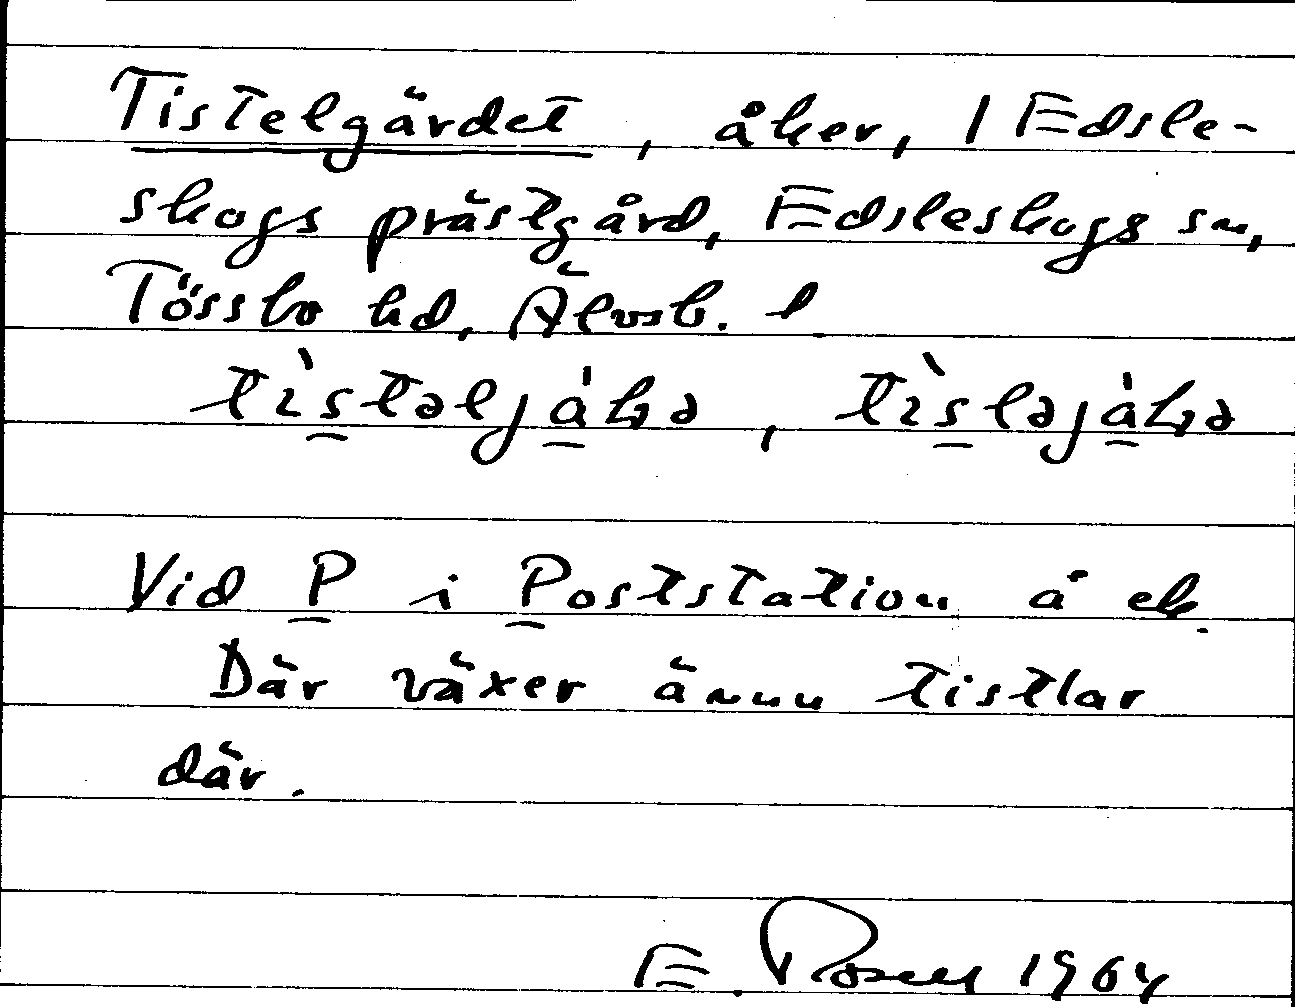 Tistelgärdet, åker, 1 Edsle-
skogs prästgård, Edsleskogs sn,
Tössbo hd, Älvsb. l
Vid P i Poststation å ek.
Där växer ännu tistlar
där.
E. Rosell 1964